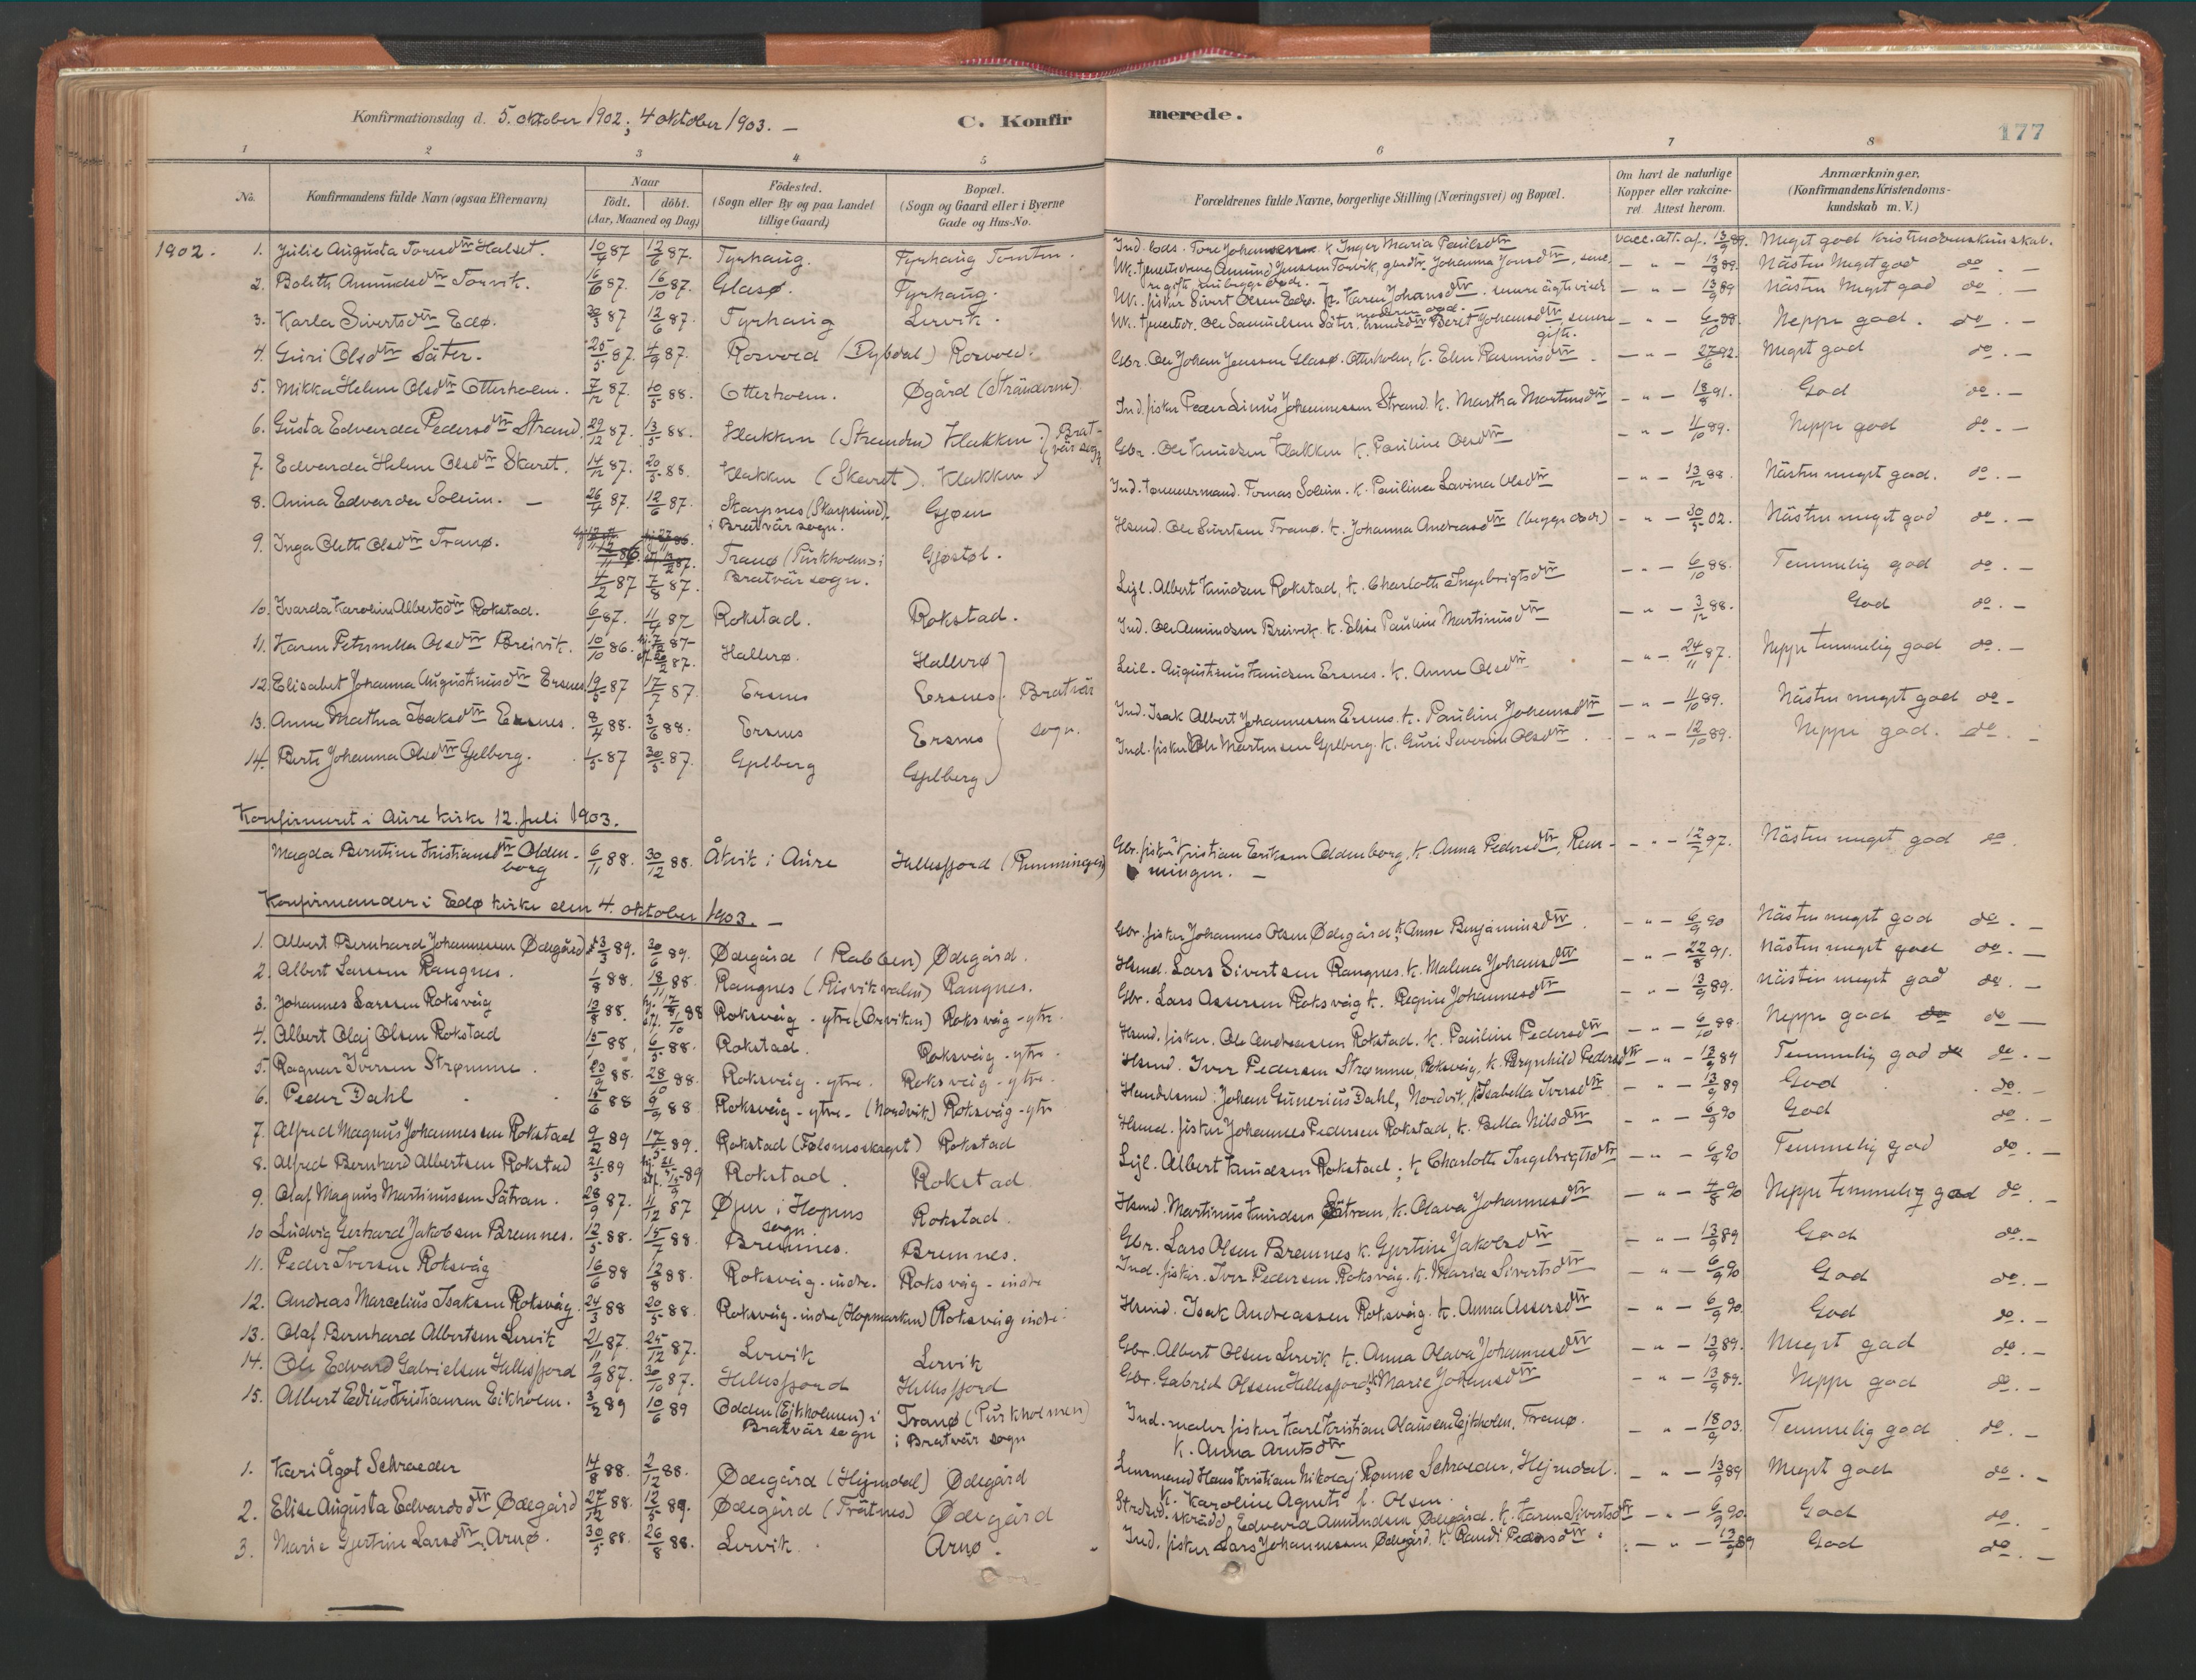 Konfirmationsdag d. 5. oktober 1902; 4 oktober 1903. —
C. Konfirmerede.
177
1 2 3 4 5 6 7 8
No.
Konfirmandens fulde Navn (ogsaa Efternavn)
Naar
født. døbt.
(Aar, Maaned og Dag)
Fødested.
(Sogn eller By og paa Landet
tillige Gaard)
Bopæl.
(Sogn og Gaard eller i Byerne
Gade og Hus-No.
Forældrenes fulde Navne, borgerlige Stilling (Næringsvei) og Bopæl.
Om havt de naturlige
Kopper eller vakcine-
ret. Attest herom.
Anmærkninger.
(Konfirmandens Kristendoms-
kundskab m. V.)
1902. 1. Julie Augusta Toresdtr Halset. 10/4 87 12/6 87. Tyrhaug. Tyrhaug Tomten. Ind. Tore Johansen k. Inger Maria Paulsdtr vacc. att. af. 13/9 89. Meget god Kristendomskunskab.
2. Boleth Amundsdtr Torvik. 16/6 87. 16/10 87. Glasø. Tyrhaug. Uk. tjenestedreng Amund Jenssen Torvik, Johanna Jonsdtr — " — 13/9 89. Nästen Meget god do. —
3. Karla Sivertsdtr Edø. 12/6 87. Tyrhaug Lervik. Uk. fisker Sivert Olsen Edø. Karen Johansdtr — " — 13/9 89 Nästen Meget god do. —
4. Guri Olsdtr Säter. 25/5 87. 4/9 87. Rosvold (Dybdal) Rosvold. Uk. tjenestedr. Ole Samuelsen Säter, Beret Johansdtr senere gift. — " — 6/10 88. Neppe god. do. —
5. Mikka Helene Olsdtr Otterholm. 7/12 87. 10/5 88. Otterholm. Øgård (Stranderne) Gbr. Ole Johan Jenssen Glasø. Otterholm, k. Elen Rasmusdtr. — " — 27/6 92. Meget god do. —
6. Gusta Edvarda Pedersdtr Strand. 29/12 87. 13/5 88. Klakken (Stranden) Klakken. Bratvär sogn Ind. fisker Peder Linus Johannessen Strand. k. Martha Martinsdtr — " — 18/8 91. God do. —
7. Edvarda Helene Olsdtr Skaret. 14/12 87. 20/5 88. Klakken (Skaret). Klakken Gbr. Ole Knudsen Klakken k. Pauline Olsdtr — " — 11/10 89. Neppe god do. —
8. Anna Edvarda Solem. — 26/4 87. 12/6 87. Skarpnes (Skarpsund) i Bratvär sogn. Gjøen Ind. tømmermand. Tomas Solem. k. Paulina Lavina Olsdtr — " — 13/12 88. Nästen meget god. do. —
9. Inga Oleth Olsdtr Tranø. 4/2 87 7/8 87. Tranø (Purkholmen) i Bratvär sogn. Gjøstøl. Hsmd. Ole Sivertsen Tranø. k. Johanna Andreasdtr (begge døde) — " — 30/5 02. Nästen meget god do. —
10. Ivarda Karoline Albertsdtr Rokstad. 6/1 87. 11/4 87 Rokstad. Rokstad. Lejl. Albert Knudsen Rokstad, k. Charlotte Ingebrigtsdtr — " — 6/10 88. Temmelig god do. —
11. Karen Petrnella Olsdtr Breivik. 10/10 86. Hallerø. Hallerø Ind. Ole Amundsen Breivik k. Elise Pauline Martinusdtr — " — 3/12 88. God do. —
12. Elisabet Johanna Augustinusdtr Ersnes 19/5 87 17/7 87. Ersnes Ersnes. Bratvär Leil. Augustinus Knudsen Ersnes. k. Anne Olsdtr — " — 24/11 87. Neppe temmelig god do. —
13. Anne Mathea Isaksdtr Ersnes. 8/4 88. 3/6 88. Ersnes Ersnes sogn. Ind. Isak Albert Johannessen Ersnes. k. Pauline Johansdtr — " — 11/10 89. Nästen meget god do —
14. Berte Johanna Olsdtr Gjelberg. 1/5 87 30/5 87. Gjelberg Gjelberg Ind. fisker Ole Martinsen Gjelberg. k. Guri Severine Olsdtr. — " — 12/10 89. Neppe god. do. —
Konfirmeret i Aure kirke 12. Juli 1903.
Magda Berntine Kristiansdtr Oldenborg 6/11 88. 30/12 88. Åkvik i Aure Hellesfjord (Renningen) Gbr. fisker Kristian Eriksen Oldenborg, k. Anna Pedersdtr, Renningen. — — " — 12/7 97. Nästen meget god do
Konfirmander i Edø kirke den 4. oktober 1903. —
1. Albert Bernhard Johannessen Ødegård 23/3 89. 30/6 89. Ødegård (Rabben) Ødegård. Gbr. fisker Johannes Olsen Ødegård k. Anne Benjaminsdtr. — " — 6/9 90 Nästen meget god do. —
2. Albert Larsen Rangnes. 1/8 88. 18/11 88. Rangnes (Risvikvalen) Rangnes. Hsmd. Lars Sivertsen Rangnes. k. Malena Johansdtr — " — 22/8 91. Nästen meget god do. —
3. Johannes Larssen Roksvåg 13/8 88. Roksvåg - ytre (Orviken) Roksvåg - ytre. Gbr. Lars Assersen Roksvåg k. Regine Johannesdtr — " — 13/9 89. Nästen meget god do. —
4. Albert Olaj Olsen Rokstad 15/1 88. 6/5 88. Rokstad. Roksvåg - ytre. Hsmd. fisker. Ole Andreassen Rokstad. k. Pauline Pedersdtr — " — 6/10 88. Neppe god do —
5. Ragnar Iversen Strømme. 28/10 88. Roksvåg - ytre. Roksvåg - ytre. Hsmd. Iver Pedersen Strømme, Roksvåg, k. Brynhild Pedersdtr — " — 13/9 89 Temmelig god do. —
6. Peder Dahl 15/6 88 9/9 88. Roksvåg - ytre - (Nordvik) Roksvåg - ytre Handelsmd. Johan Gunerius Dahl, Nordvik, k. Isabella Iversdtr — " — 13/9 89 God do. —
7. Alfred Magnus Johannessen Rokstad 9/2 89 17/5 89. Rokstad (Følsmoskaget) Rokstad Hsmd. fisker Johannes Pedersen Rokstad, k. Bella Nilsdtr — " — 6/9 90 God do. —
8. Alfred Bernhard Albertsen Rokstad 21/5 89 Rokstad. Rokstad Lejl. Albert Knudsen Rokstad; k Charlotte Ingebrigtsdtr — " — 6/9 90 Temmelig god do. —
9. Olaf Magnus Martinussen Sätran. 28/9 87. 11/12 87 Øjen i Hopens sogn Rokstad. Hsmd. Martinus Knudsen Sätran, k. Olava Johannesdtr — " — 4/8 90 Neppe temmelig god do. —
10 Ludvig Gerhard Jakobsen Bremnes. 12/5 88. 15/7 88. Bremnes. Bremnes. Gbr. Lars Olsen Bremnes k. Gjertine Jakobsdtr — " — 13/9 89 God do. —
11. Peder Iversen Roksvåg 16/6 88 12/8 88. Roksvåg - indre. Roksvåg - indre Ind. fisker. Iver Pedersen Roksvåg. k. Maria Sivertsdtr — " — 6/9 90 God do. —
12. Andreas Marcelius Isaksen Roksvåg. 24/3 88 20/5 88. Roksvåg - indre (Hopmarken) Roksvåg indre. Hsmd. Isak Andreassen Roksvåg. k. Anna Assersdtr — " — 6/9 90. God do. —
13. Olaf Bernhard Albertsen Lervik 21/11 87. 25/12 87. Lervik Lervik Gbr. Albert Olsen Lervik k. Anna Olava Johannesdtr — " — 13/9 89. Meget god do. —
14. Ole Edvard Gabrielsen Hellesfjord 9/9 87. 30/10 87. Hellesfjord Hellesfjord Gbr. Gabriel Olssen Hellesfjord k. Marie Johansdtr — " — 13/9 89. Neppe god do. —
15. Albert Edius Kristiansen Eikholm. 3/2 89 10/6 89 Odden (Eikholmen) i Bratvär sogn Tranø (Purkholmen) i Bratvär sogn Ind. maler fisker Karl Kristian Olaussen Ejkholm, Tranø. k. Anna Arntsdtr — " — 18/9 03. Temmelig god do. —
1. Kari Ågot Schrøeder 14/8 88. 2/12 88. Ødegård (Hejmdal) Ødegård Lensmand Hans Kristian Nikolaj Rønne Schrøeder, Hejmdal. k. Karoline Agnete f. Olsen. — " — 13/9 89 Meget god do. —
2. Elise Augusta Edvardsdtr Ødegård 27/12 88. 12/5 89. Ødegård (Trätnes) Ødegård skrädd. Edvard Amundsen Ødegård. k. Karen Sivertsdtr — " — 6/9 90. God do. —
3. Marie Gjertine Larsdtr Arnø. 30/5 88. 26/8 88. Lervik. Arnø. Ind. fisker Lars Johannessen Ødegård. k. Randi Pedersdtr — " — 13/9 89 God do. —